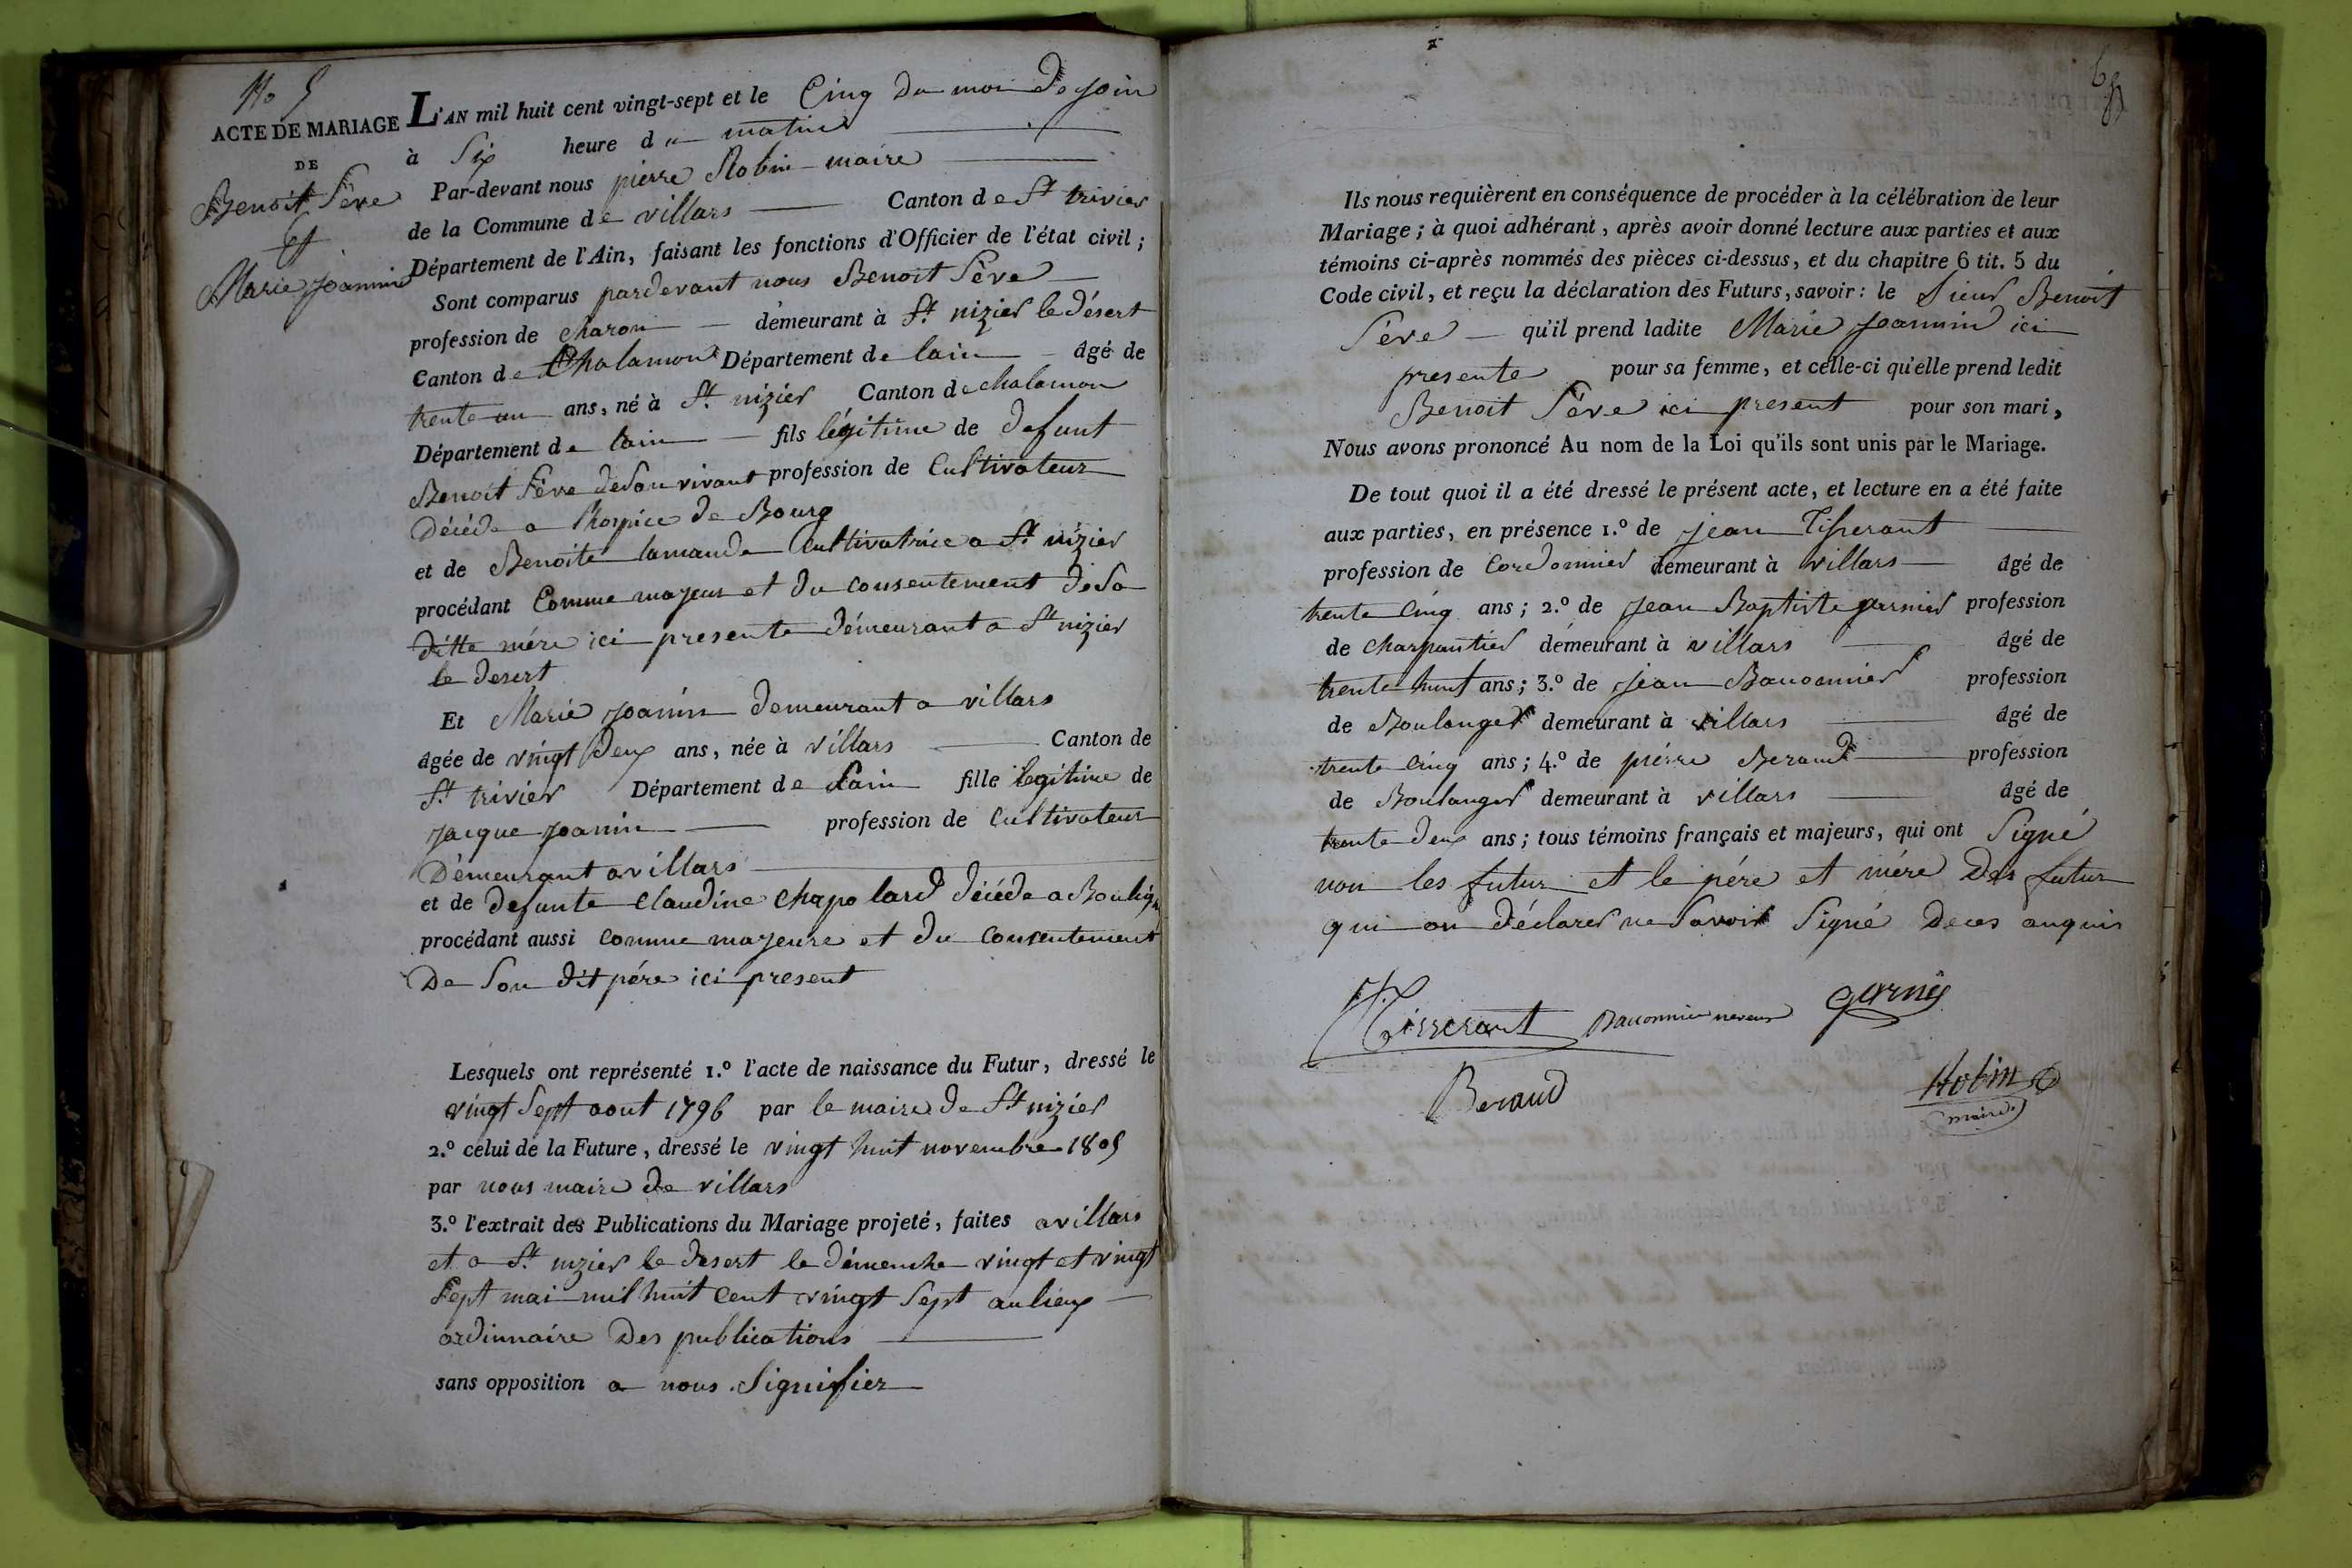 No 5
ACTE DE MARIAGE
DE
Benoit Sêve
et
Marie Joannin
L'AN mil huit cent vingt-sept et le Cinq du moi de join
à Six heure du matin
Par-devant nous pierre Robin maire
de la Commune de villars Canton de St trivier
Département de l'Ain, faisant les fonctions d'Officier de l'état civil;
Sont comparus pardevant nous Benoit Sêve
profession de charon demeurant à St nizier le désert
Canton de Chalamon Département de lain âgé de
trente un ans, né à St nizier Canton de chalamon
Département de lain fils légitime de defunt
Benoit Sêve de son vivant profession de Cultivateur
Décéde a l'hospice de Bourg
et de Benoite lamande Cultivatrice a St nizier
procédant Comme majeur et du consentement de sa
ditte mére ici presente démeurant a St nizier
le desert
Et Marie joanin demeurant a villars
âgée de vingt deux ans, née à villars Canton de
St trivier Département de lain fille legitime de
jacque joanin profession de Cultivateur
Démeurant a villars
et de defunte Claudine Chapolard décéde a Boulign
procédant aussi comme majeure et du consentement
De son dit pére ici present
Lesquels ont représenté 1.º l'acte de naissance du Futur, dressé le
vingt Sept aout 1796 par le maire de St nizier
2.º celui de la Future, dressé le vingt huit novembre 1805
par nous maire de villars
3.º l'extrait des Publications du Mariage projeté, faites a villars
et a St nizier le desert le démenche vingt et vingt
Sept mai mil huit cent vingt Sept au lieux
ordinnaire Des publications
sans opposition a nous Signifier
Ils nous requièrent en conséquence de procéder à la célébration de leur
Mariage; à quoi adhérant, après avoir donné lecture aux parties et aux
témoins ci-après nommés des pièces ci-dessus, et du chapitre 6 tit. 5 du
Code civil, et reçu la déclaration des Futurs, savoir: le Sieur Benoit
Sêve qu'il prend ladite Marie Joannin ici
presente pour sa femme, et celle-ci qu'elle prend ledit
Benoit Sêve ici present pour son mari,
Nous avons prononcé Au nom de la Loi qu'ils sont unis par le Mariage.
De tout quoi il a été dressé le présent acte, et lecture en a été faite
aux parties, en présence 1.º de jean Tisserant
profession de Cordonnier demeurant à villars âgé de
trente Cinq ans; 2.º de Jean Baptiste garnier profession
de charpantier demeurant à villars âgé de
trente huit ans; 3.º de Jean Bauonnier profession
de Boulanger demeurant à villars âgé de
trente Cinq ans; 4.º de piérre Beraud profession
de Boulanger demeurant à villars âgé de
trente deux ans; tous témoins français et majeurs, qui ont Signé
non les futur et le pére et mére Des futur
qui on déclarer ne Savoir Signé De ces anquis
Tisserant Bauonnier neveux garnie
Beraud
Robin
maire